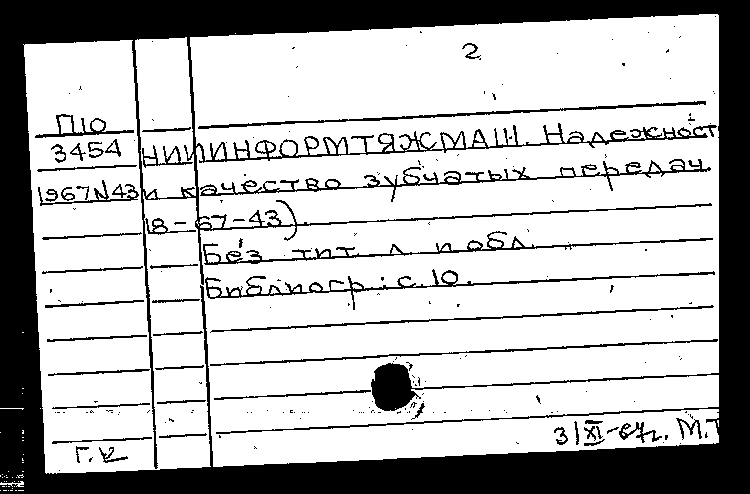 2
П10
3454 НИИИНФОРМТЯЖМАШ. Надежност
1967N43 и качество зубчатых передач.
18-67-43).
Без тит. л. и обл.
Библиогр: с. 10.
3/XI-67г. М.Т